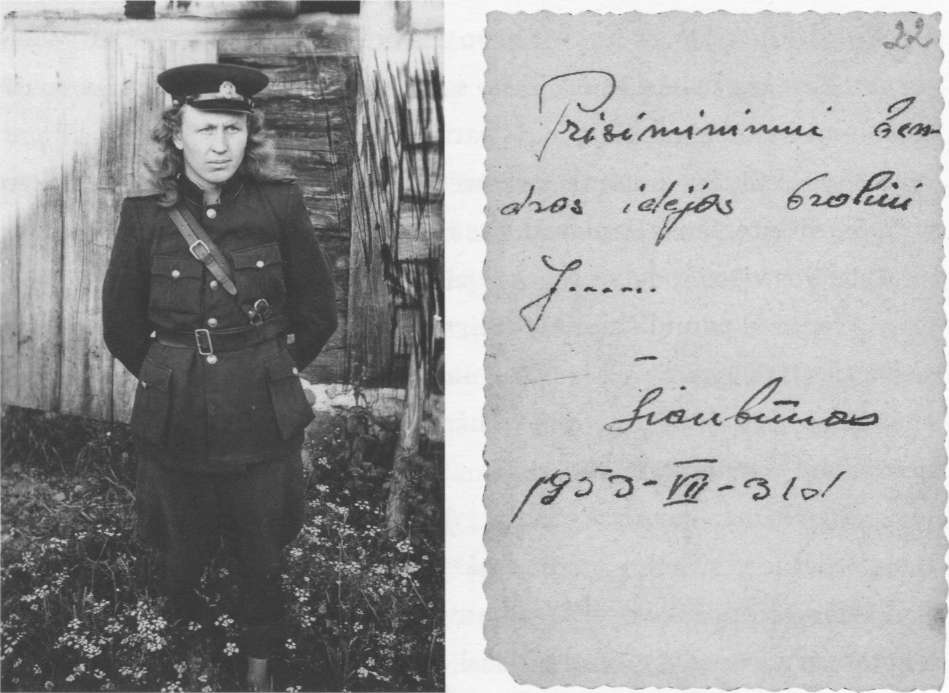 22
Prisiminimui ben-
dros idėjos broliui
J......
Siaubūnas
1953-VII-31d